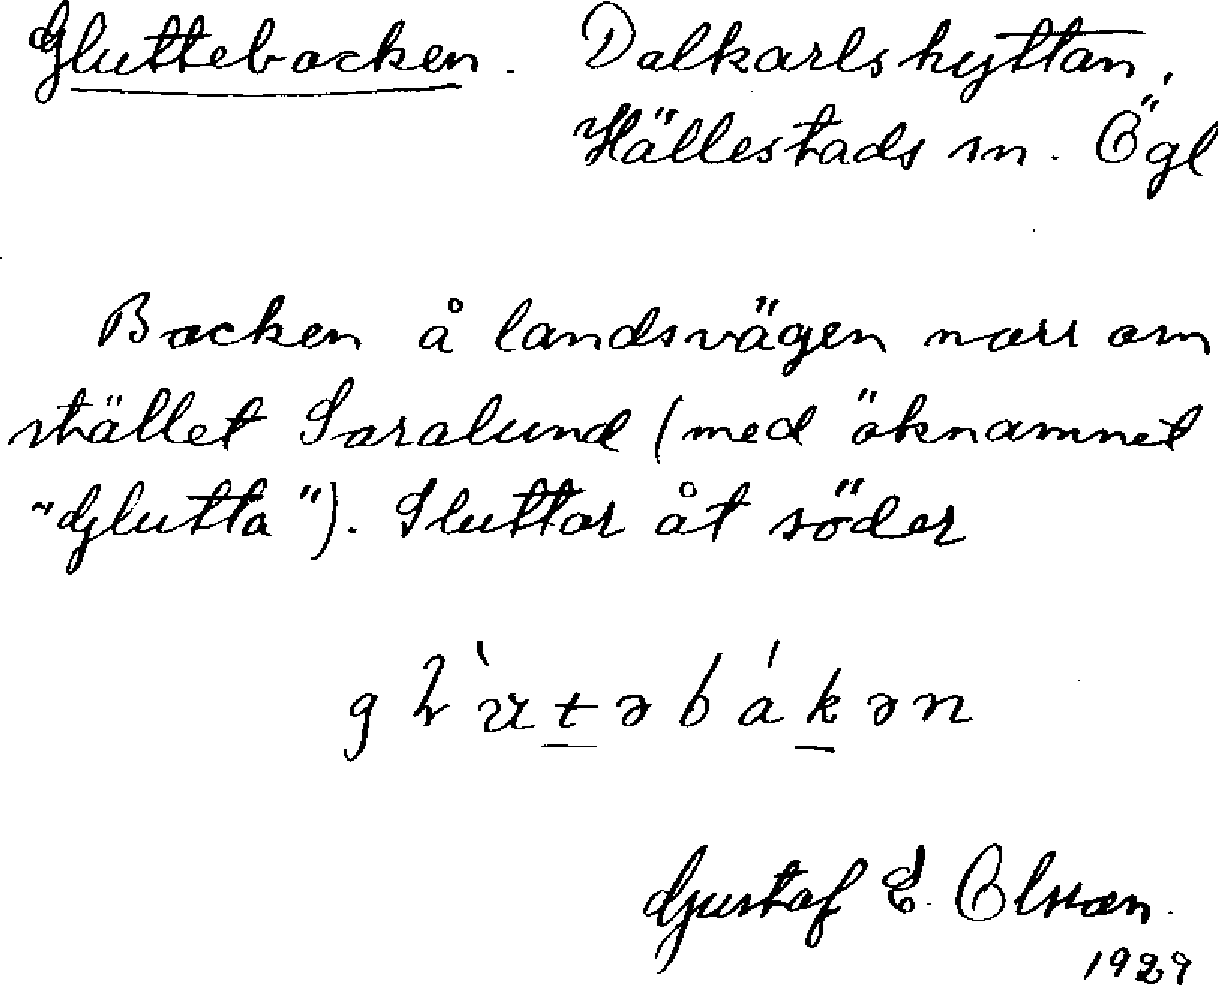 Gluttebacken. Dalkarlshyttan,
Hällestads sn. Ögl
Backen å landsvägen norr om
stället Saralund (med öknamnet
"Glutta"). Sluttar åt söder
Gustaf E. Olsson.
1929